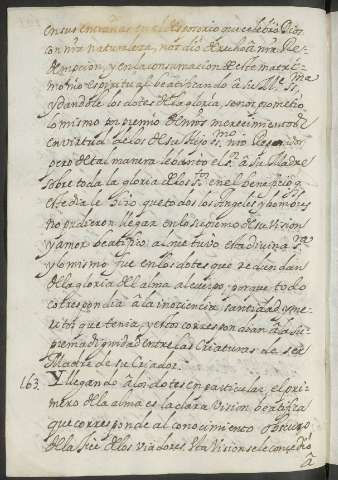 en sus entrañas en el desposorio que celebró Dios
con nrã naturaleza, nos dio derecho a nrã Re-
dempcion, y en la consumacion de este matri-
monio espiritual beatificando â su Me. SSma.
y dandole los dotes de la gloria, senos prometio
lo mismo por premio de nrõs merecimientos
en virtud de los de su Hijo smo. nrõ Reparador,
pero de tal manera levantó el Sr. â su Madre
sobre toda la gloria de los Stos. en el beneficio q
este dia le hizo que todos los Angeles y hombres
no pudieron llegar en lo supremo de su Vision
y amor beatifico al que tubo esta divina Sra.
y lo mismo fue en los dotes que redundan
de la gloria del alma al cuerpo, porque todo
correspondia â la inociencia santidad y me-
ritos que tenia, y estos correspondian â la su-
prema dignidad entre las criaturas de ser
Madre de su Criador.
163. Y llegando â los dotes en particular, el pri-
mero del alma es la clara Vision beatifica
que corresponde al conocimiento obscuro
de la fee de los viadores. Esta Vision se le concedió
â